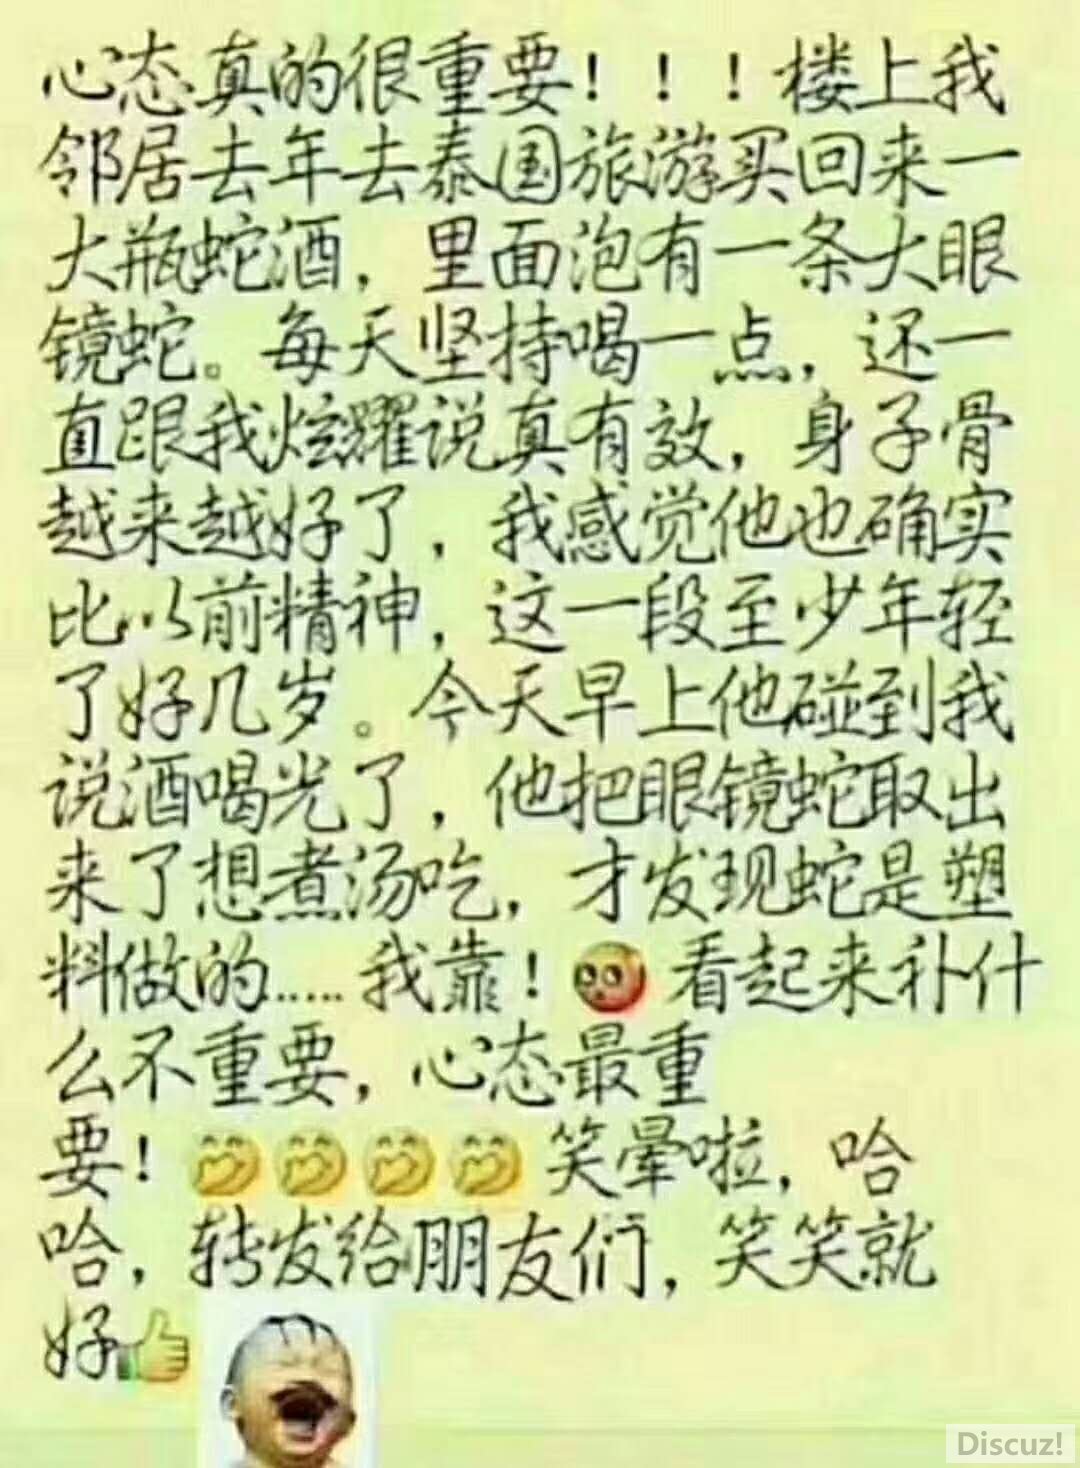 心态真的很重要！！！楼上我
邻居去年去泰国旅游买回来一
大瓶蛇酒，里面泡有一条大眼
镜蛇。每天坚持喝一点，还一
直跟我炫耀说真有效，身子骨
越来越好了，我感觉他也确实
比以前精神，这一段至少年轻
了好几岁。今天早上他碰到我
说酒喝光了，他把眼镜蛇取出
来了想煮汤吃，才发现蛇是塑
料做的.....我靠！看起来补什
么不重要，心态最重
要！笑晕啦，哈
哈，转发给朋友们，笑笑就
好
Discuz!